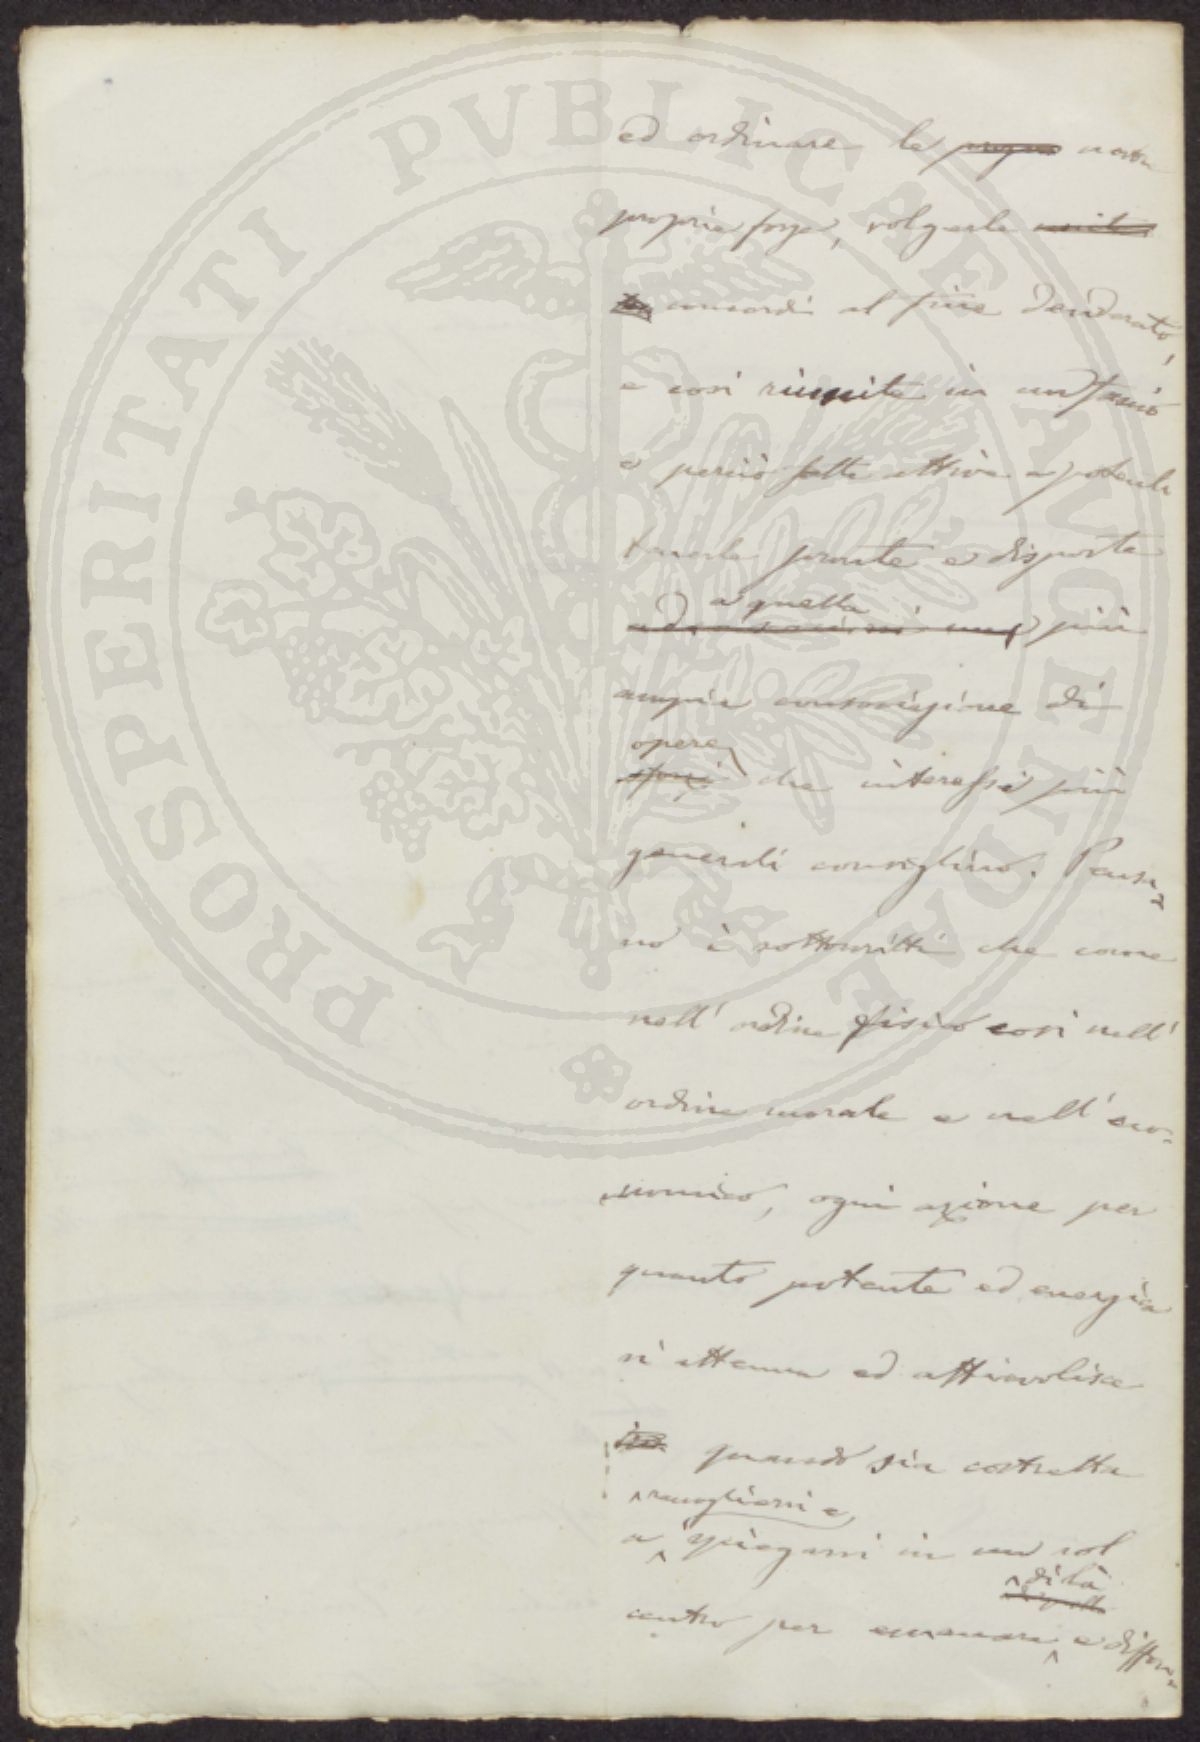 PROSPERITATI PVBLICAE AVGENDAE
ed ordinare le nostre
proprie forze, volgerle
concordi al fine desiderato,
e così riunite in un fascio
e perciò fatte attive e potenti
tenerle pronte e disposte
a quella
più
ampia consociazione di
opere
sforzi che interessi più
generali consiglino. Pensa=
no i sottoscritti che come
nell' ordine fisico così nell'
ordine morale e nell' eco-
nomico, ogni azione per
quanto potente ed energica
si attenua ed affievolisce
quando sia costretta
raccogliersi e
a spiegarsi in un sol
di là
centro per emanare e diffon=